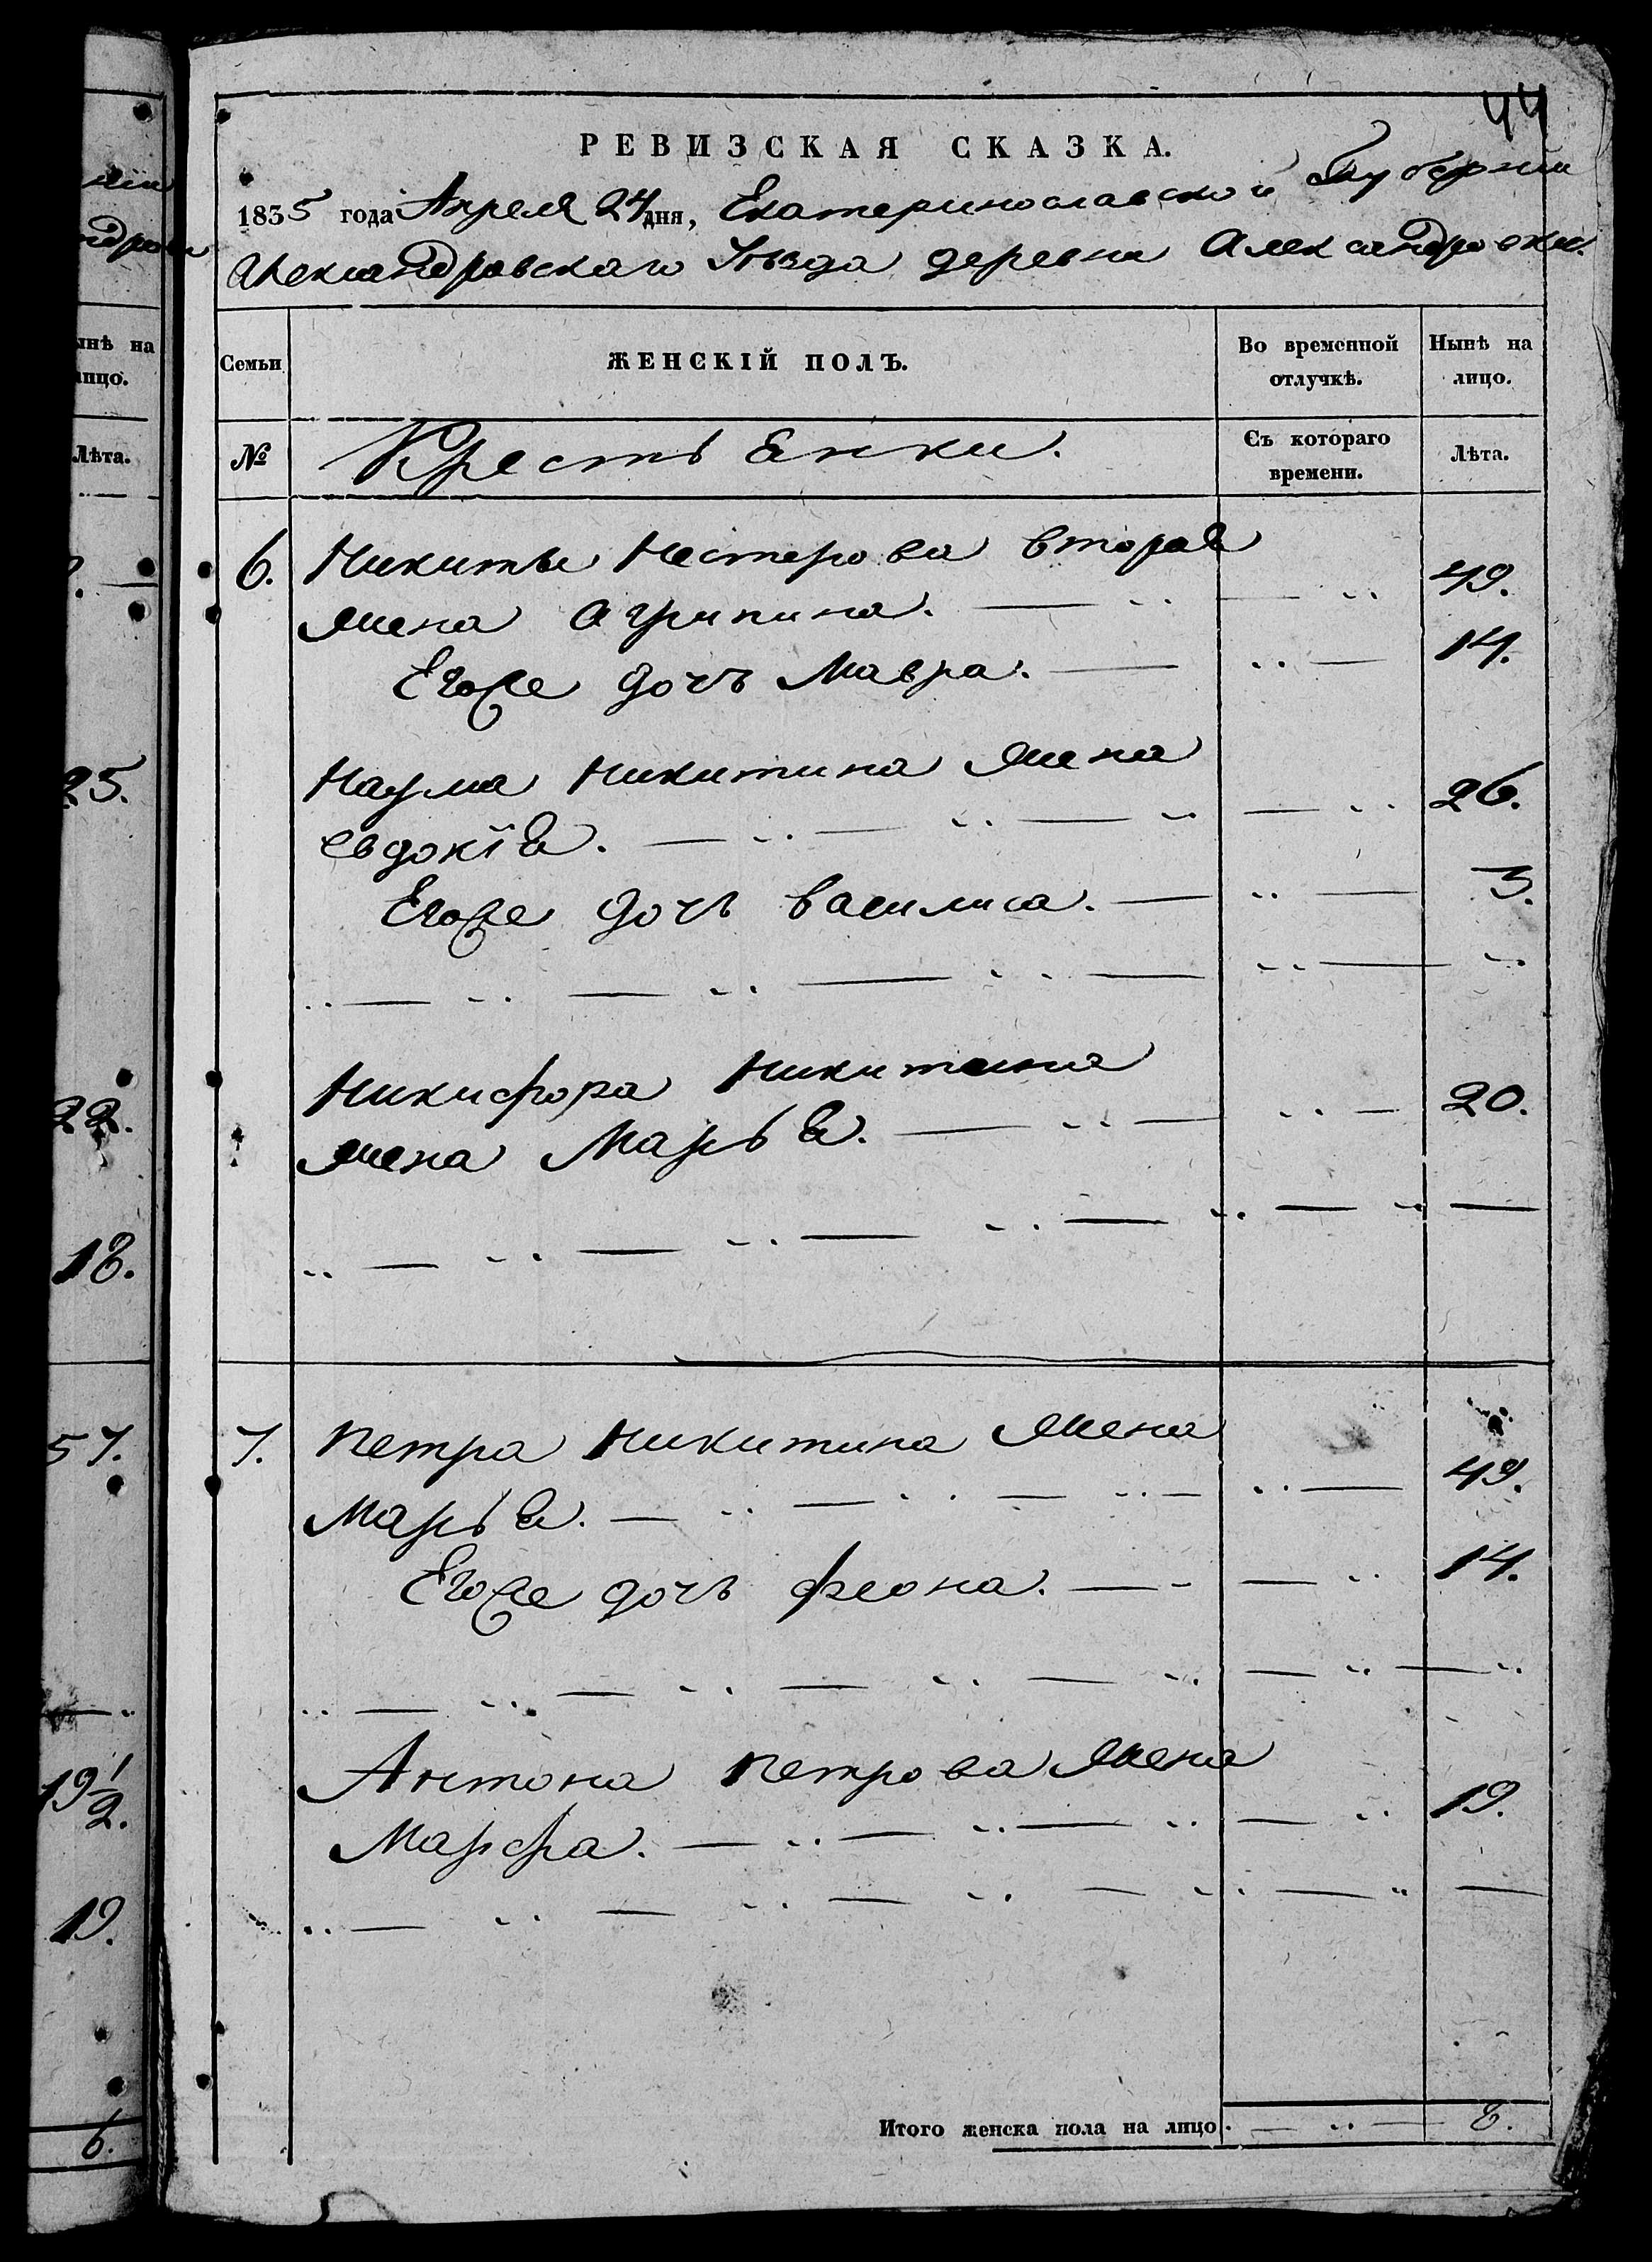 44
РЕВИЗСКАЯ СКАЗКА.
1835 года Апреля 24 дня, Екатеринославской Губернии
Александровскаго Уѣзда деревни Александровки.
Семьи
ЖЕНСКІЙ ПОЛЪ.
Во временной отлучкѣ.
Нынѣ на лицо.
№
Крестьянки.
Съ котораго времени.
Лѣта.
6. Никиты Нестерова вторая
жена Агрипина. 49.
Егоже дочь Мавра. 14.
Наума Никитина жена
Евдокія. 26.
Егоже дочь Василиса. 3.
Никифора Никитина
жена Марья. 20.
7. Петра Никитина жена
Марья. 49.
Егоже дочь Феона. 14.
Антона Петрова жена
Марфа. 19.
Итого женска пола на лицо. 8.
ынѣ на
лицо.
Лѣта.
25.
22.
18.
57.
19 1/2.
19.
6.